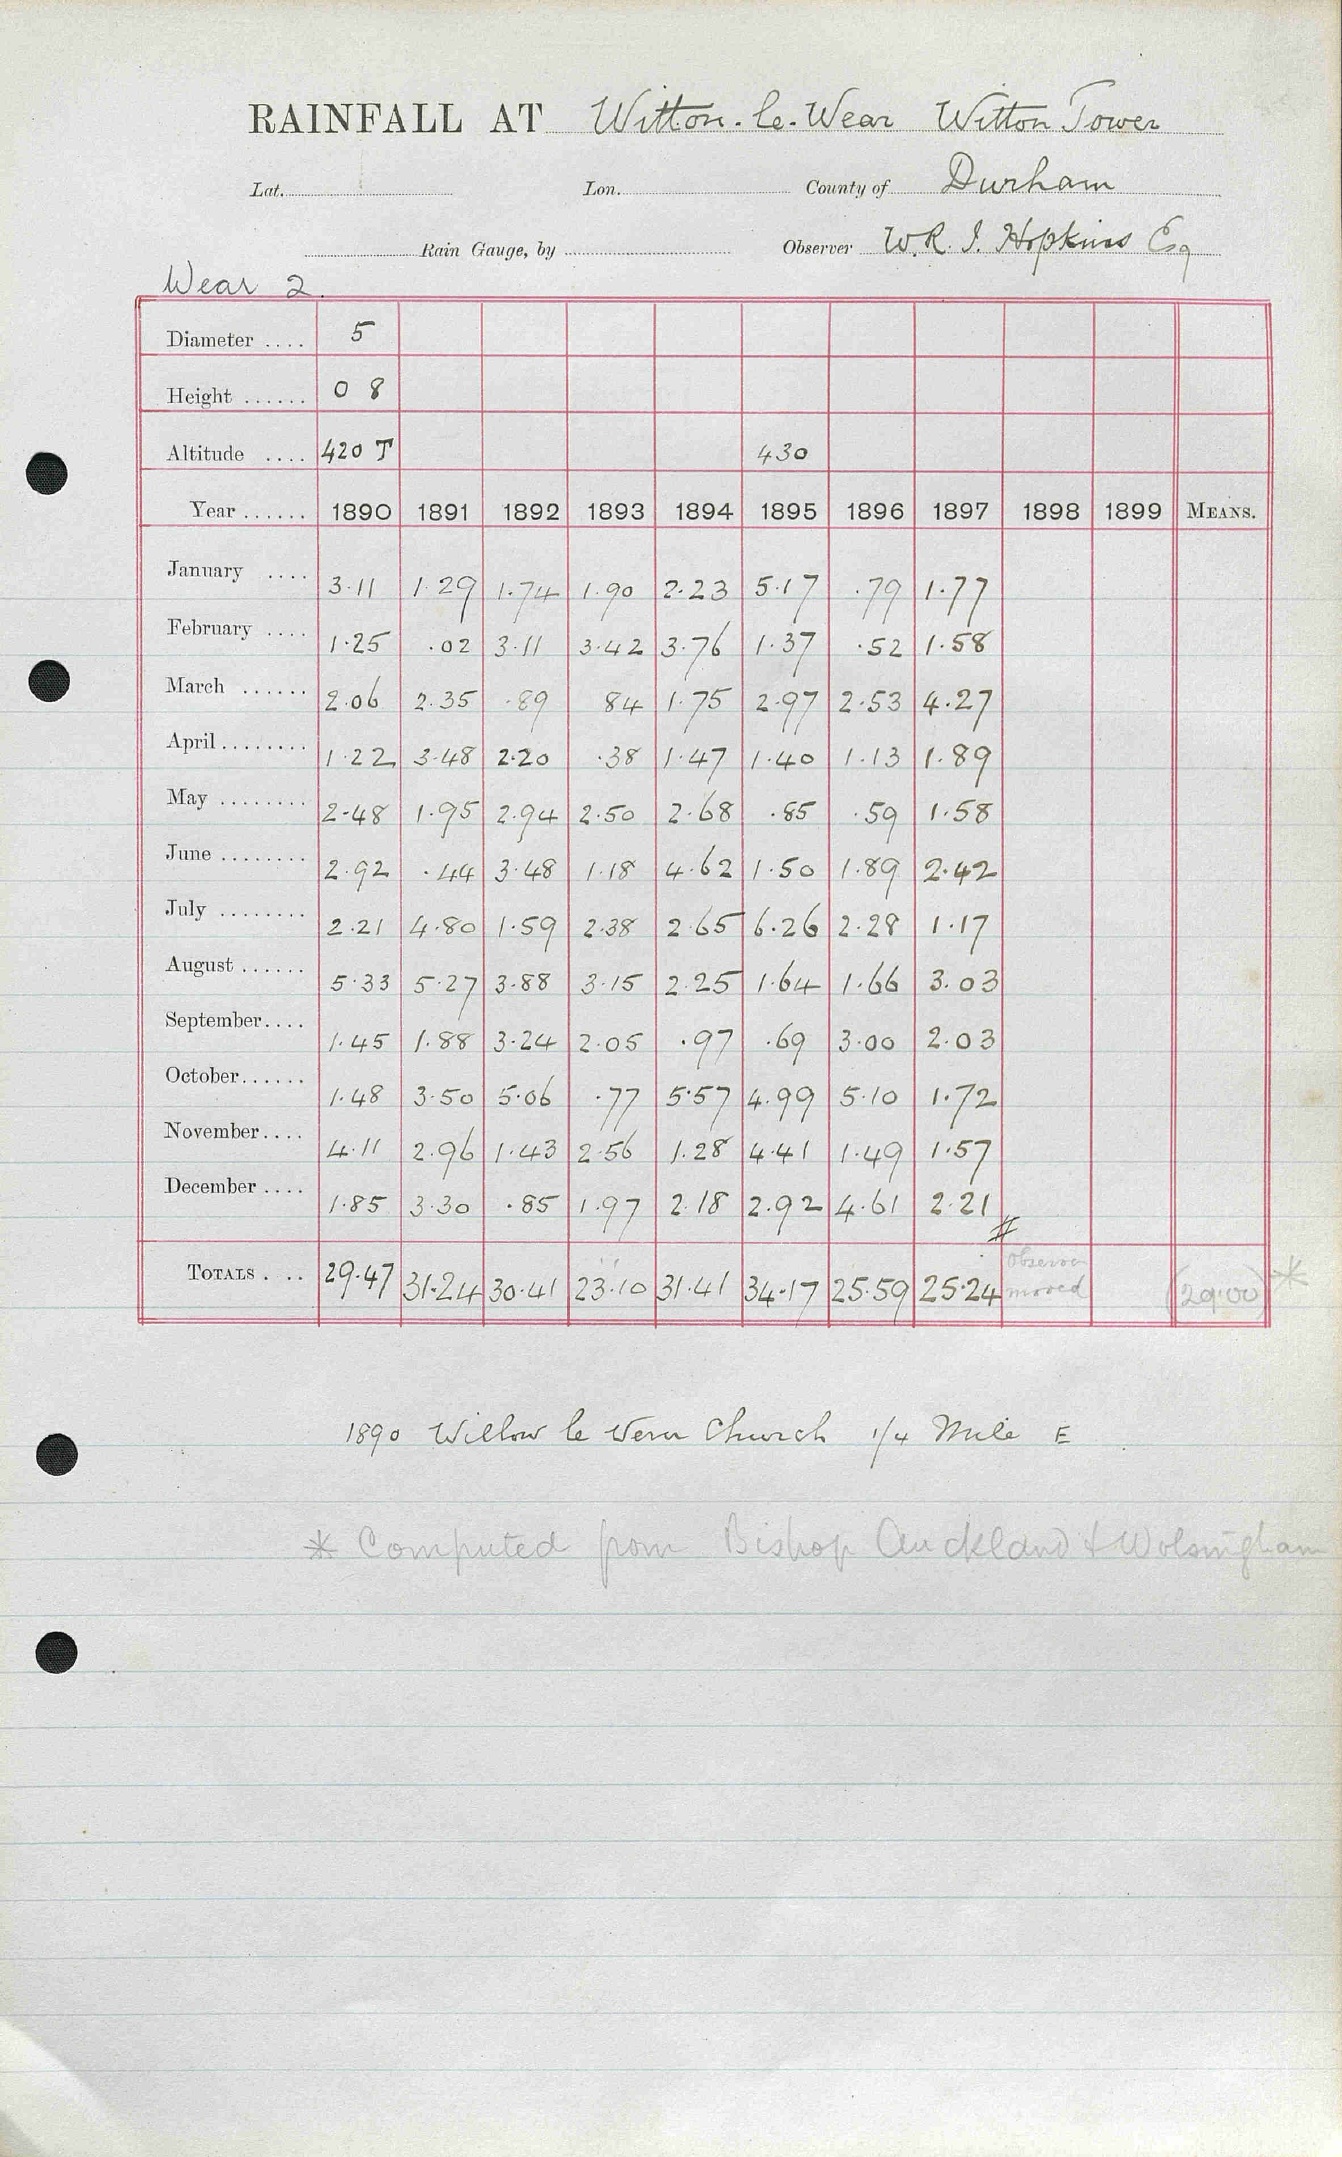 RAINFALL AT Witton-le-Wear Witton Tower
Lat. Lon. County of Durham
Rain Gauge, by Observer W.R.I. Hopkins Esq
Wear 2.
Diameter .... 5
Height ...... 0 8
Altitude .... 420 T 430
Year ...... 1890 1891 1892 1893 1894 1895 1896 1897 1898 1899 MEANS.
January .... 3.11 1.29 1.74 1.90 2.23 5.17 .79 1.77
February .... 1.25 .02 3.11 3.42 3.76 1.37 .52 1.58
March ...... 2.06 2.35 .89 84 1.75 2.97 2.53 4.27
April ........ 1.22 3.48 2.20 .38 1.47 1.40 1.13 1.89
May ........ 2.48 1.95 2.94 2.50 2.68 .85 .59 1.58
June ........ 2.92 .44 3.48 1.18 4.62 1.50 1.89 2.42
July ........ 2.21 4.80 1.59 2.38 2.65 6.26 2.28 1.17
August ...... 5.33 5.27 3.88 3.15 2.25 1.64 1.66 3.03
September .... 1.45 1.88 3.24 2.05 .97 .69 3.00 2.03
October ...... 1.48 3.50 5.06 .77 5.57 4.99 5.10 1.72
November .... 4.11 2.96 1.43 2.56 1.28 4.41 1.49 1.57
December .... 1.85 3.30 .85 1.97 2.18 2.92 4.61 2.21
TOTALS . .. 29.47 31.24 30.41 23.10 31.41 34.17 25.59 25.24 Observer moved (29.00) *
1890 Witton le Wear Church 1/4 Mile E
* Computed from Bishop Auckland & Wolsingham